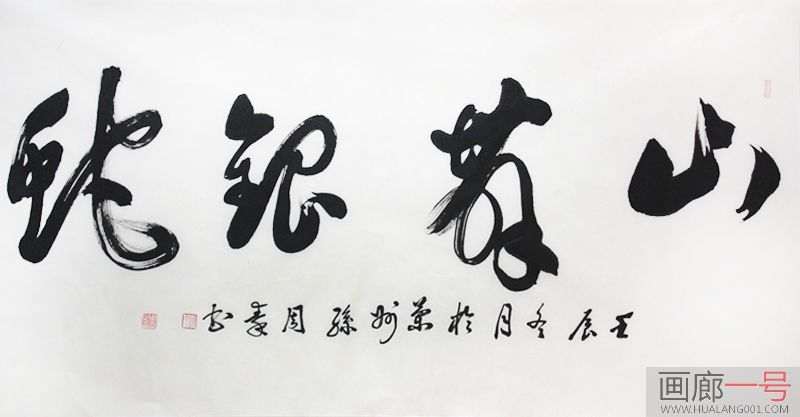 山舞銀蛇
壬辰冬月於蘭州孫周書
画廊一号
WWW.HUALANG001.COM